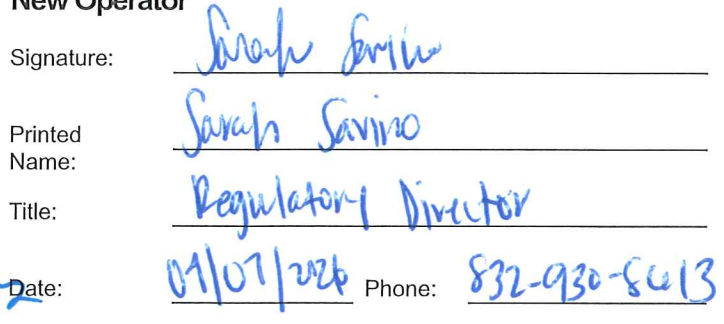 New Operator
Signature: Sarah Savino
Printed
Name: Sarah Savino
Title: Regulatory Director
Date: Phone: 832-930-8613